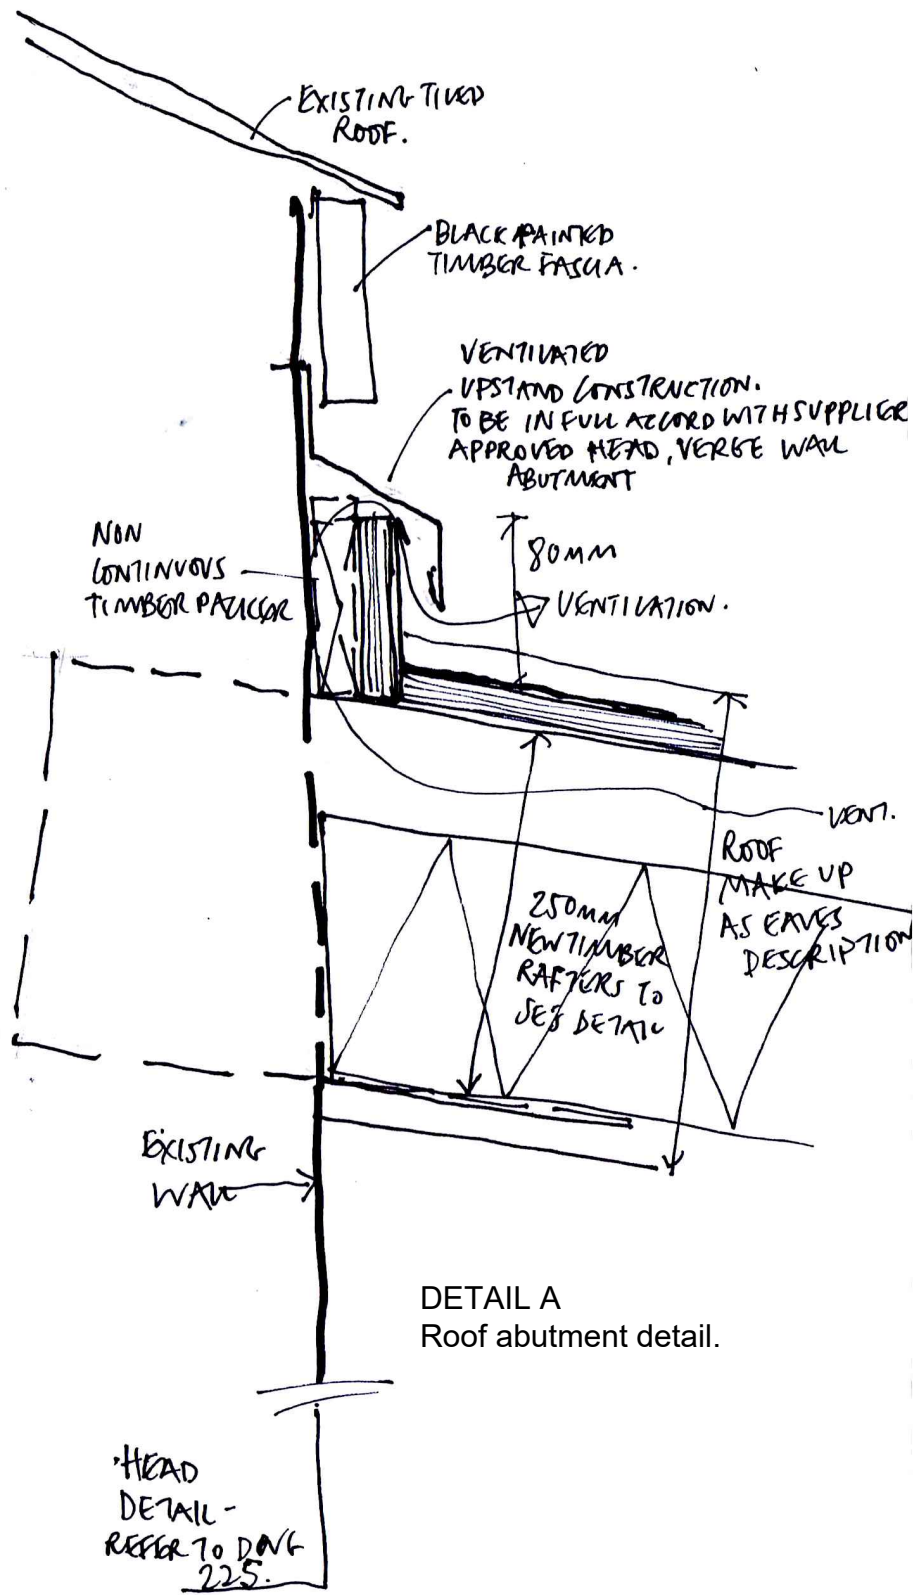 EXISTING TILED
ROOF.
BLACK PAINTED
TIMBER FASCIA.
VENTILATED
UPSTAND CONSTRUCTION.
TO BE IN FULL ACCORD WITH SUPPLIER
APPROVED HEAD, VERGE WALL
ABUTMENT
NON
CONTINUOUS
TIMBER PACKER
80MM
VENTILATION.
VENT.
ROOF
MAKE UP
AS EAVES
DESCRIPTION
250MM
NEW TIMBER
RAFTERS TO
SE'S DETAIL
EXISTING
WALL
DETAIL A
Roof abutment detail.
HEAD
DETAIL -
REFER TO DWG
225.